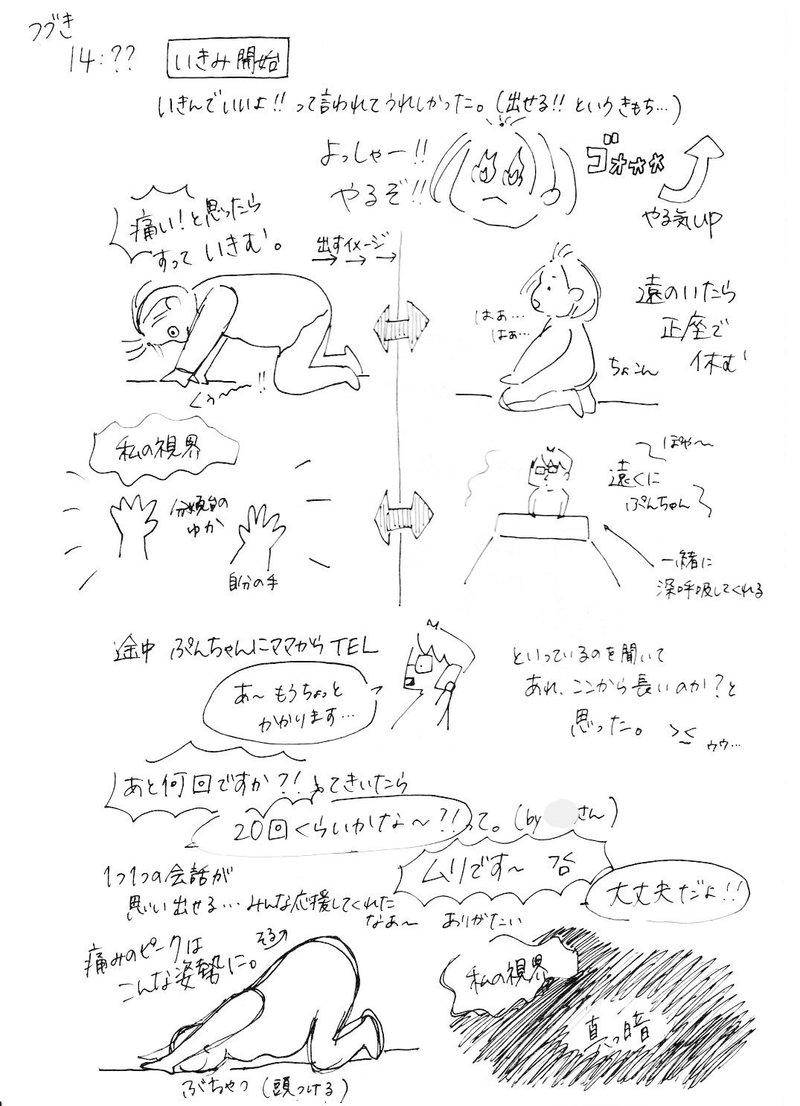 つづき
14:??
いきみ開始
いきんでいいよ!!って言われてうれしかった。(出せる!!というきもち…)
よっしゃー!!
やるぞ!!
ゴォォォォ
やる気UP
痛い!と思ったら
すって いきむ。
出すイメージ
くぅ〜〜!!
はぁ…
はぁ…
遠のいたら
正座で
休む
ちょこん
私の視界
分娩台の
ゆか
自分の手
ほや〜
遠くに
ぷんちゃん
一緒に
深呼吸してくれる
途中 ぷんちゃんにママからTEL
あ〜もうちょっと
かかります…
といっているのを聞いて
あれ、ここから長いのか?と
思った。
ゥゥ…
あと何回ですか?!ってきいたら
20回くらいかな〜?!って。(by さん)
ムリです〜
大丈夫だよ!!
1つ1つの会話が
思い出せる…みんな応援してくれた
なぁ〜 ありがたい
痛みのピークは
こんな姿勢に。
そるの
ぶちゃっ(頭つける)
私の視界
真っ暗